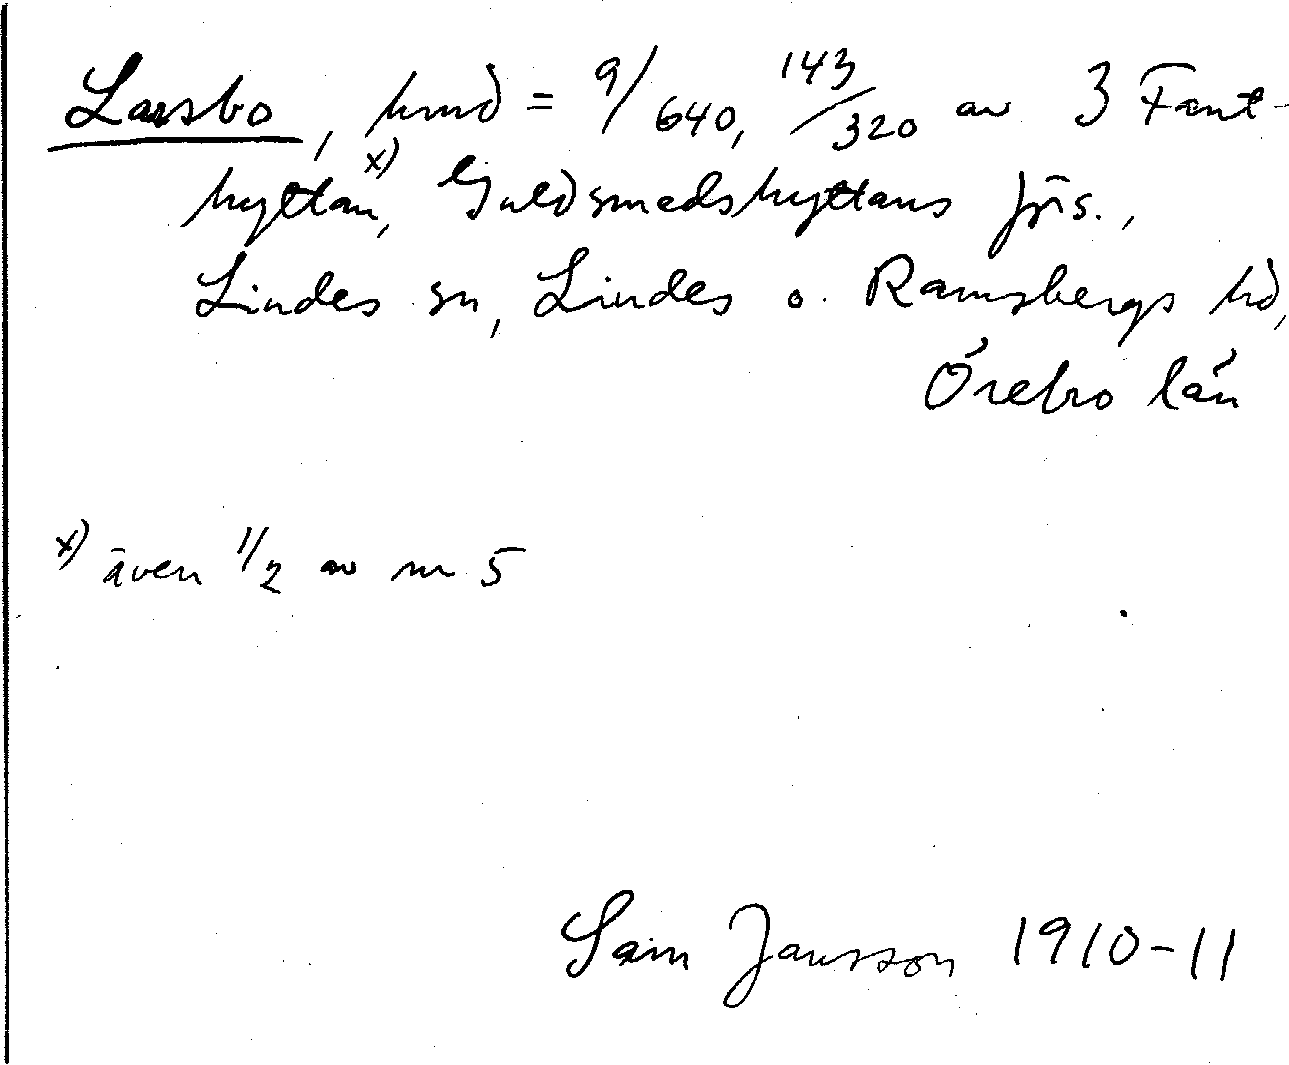 Larsbo, hmd = 9/640, 143/320 av 3 Fant-
hyttan x), Guldsmedshyttans förs.,
Lindes sn, Lindes o. Ramsbergs hd,
Örebro län
x) även 1/2 av nr 5
Sam Jansson 1910-11